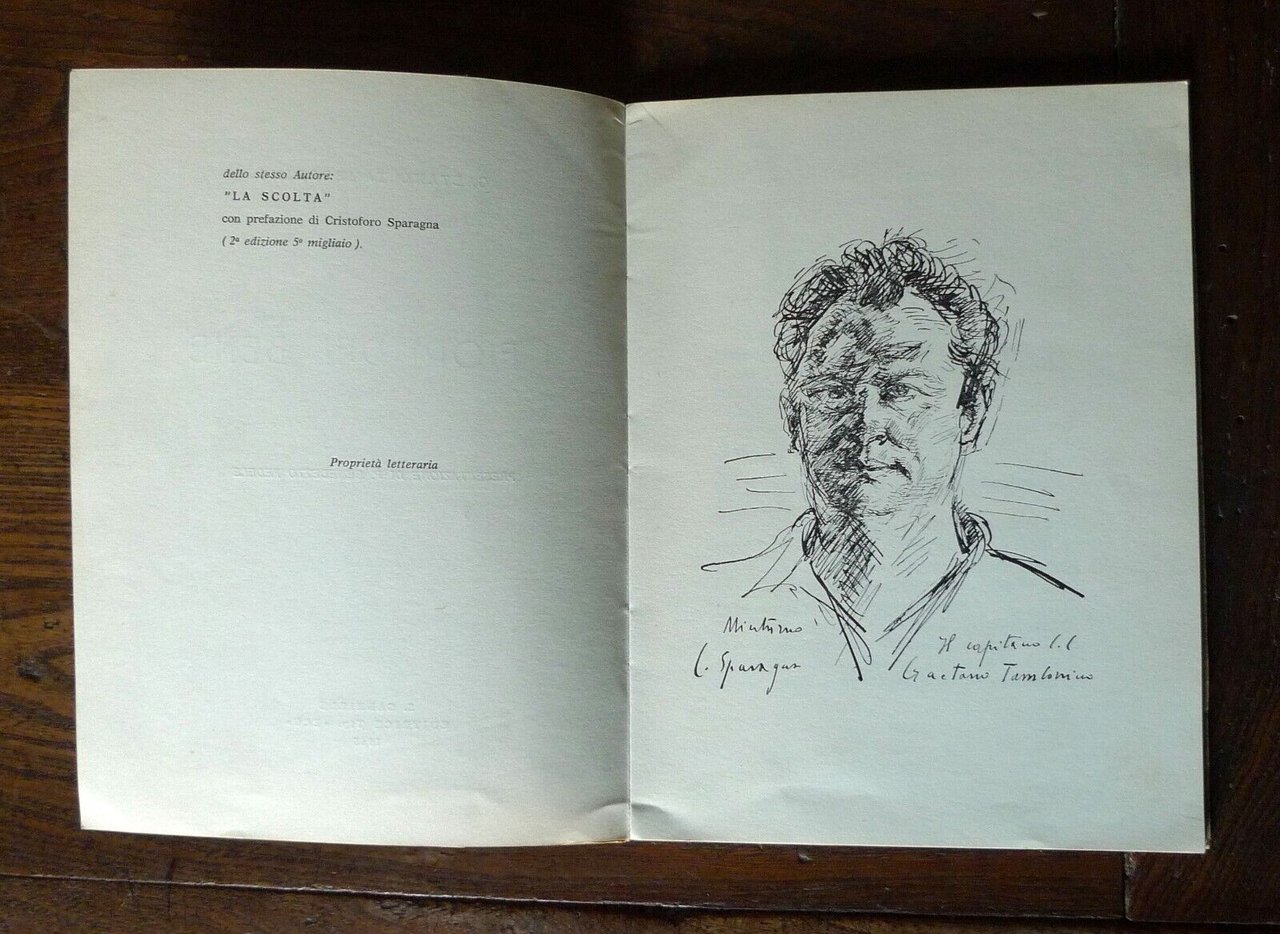 dello stesso Autore:
"LA SCOLTA"
con prefazione di Cristoforo Sparagna
( 2ª edizione 5º migliaio ).
Proprietà letteraria
Minturno
C. Sparagna
Il capitano C.C
Gaetano Tambonino